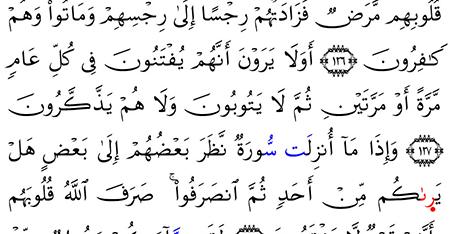 قُلُوبِهِم مَّرَضٌ فَزَادَتْهُمْ رِجْسًا إِلَىٰ رِجْسِهِمْ وَمَاتُوا۟ وَهُمْ
كَٰفِرُونَ ١٢٦ أَوَلَا يَرَوْنَ أَنَّهُمْ يُفْتَنُونَ فِى كُلِّ عَامٍ
مَّرَّةً أَوْ مَرَّتَيْنِ ثُمَّ لَا يَتُوبُونَ وَلَا هُمْ يَذَّكَّرُونَ
١٢٧ وَإِذَا مَآ أُنزِلَت سُّورَةٌ نَّظَرَ بَعْضُهُمْ إِلَىٰ بَعْضٍ هَلْ
يَرِىٰكُم مِّنْ أَحَدٍ ثُمَّ ٱنصَرَفُوا۟ۚ صَرَفَ ٱللَّهُ قُلُوبَهُم